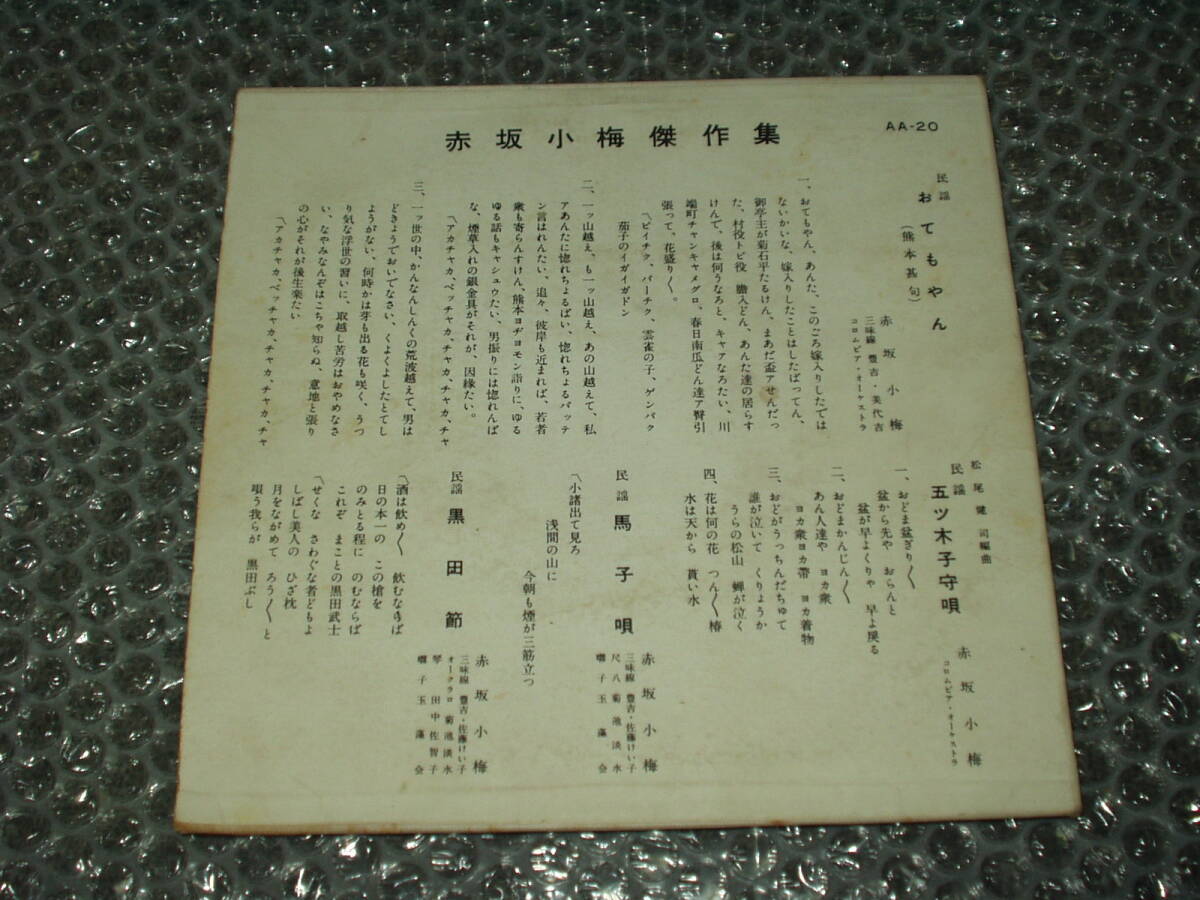 AA-20
赤坂小梅傑作集
民謡
おてもやん
(熊本甚句)
赤坂小梅
三味線 豊吉・美代吉
コロムビア・オーケストラ
一、おてもやん、あんた、このごろ嫁入りしたでは
ないかいな、嫁入りしたことはしたばってん、
御亭主が菊石平たるけん、まあだ盃アせんだっ
た、村役トビ役 膽入どん、あんた達の居らす
けんで、後は何うなろと、キャアなろたい、川
端町チャンキャメグロ、春日南瓜どん達ア臀引
張って、花盛り〳〵。
〽ピイチク、パーチク、雲雀の子、ゲンパク
茄子のイガイガドン
二、一ッ山越え、も一ッ山越え、あの山越えて、私
アあんたに惚れちょるばい、惚れちょるバッテ
ン言はれんたい、追々、彼岸も近まれば、若者
衆も寄らんすけん、熊本ヨヂヨモン詣りに、ゆる
ゆる話もキャシュウたい、男振りには惚れんば
な、煙草入れの銀金具がそれが、因縁たい。
〽アカチャカ、ベッチャカ、チャカ、チャカ、チャ
三、一ッ世の中、かんなんしんくの荒波越えて、男は
どきょうでおいでなさい、くよくよしたとてし
ようがない、何時かは芽も出る花も咲く、うつ
り気な浮世の習いに、取越し苦労はおやめなさ
い、なやみなんぞはこちゃ知らぬ、意地と張り
の心がそれが後生楽たい
〽アカチャカ、ベッチャカ、チャカ、チャカ、チャ
松尾健司編曲
民謡
五ツ木子守唄
赤坂小梅
コロムビア・オーケストラ
一、おどま盆ぎり〳〵
盆から先や おらんと
盆が早よくりや 早よ戻る
二、おどまかんじん〳〵
あん人達や ヨカ衆
ヨカ衆ヨカ帯 ヨカ着物
三、おどがうっちんだちゅて
誰が泣いて くりょうか
うらの松山 蟬が泣く
四、花は何の花 つん〳〵椿
水は天から 貰い水
民謡 馬子唄
赤坂小梅
三味線 豊吉・佐藤けい子
尺八 菊池淡水
囃子 玉藻会
〽小諸出て見ろ
浅間の山に
今朝も煙が三筋立つ
民謡 黒田節
赤坂小梅
三味線 豊吉・佐藤けい子
オークラロ 菊池淡水
琴 田中佐智子
囃子 玉藻会
〽酒は飲め〳〵 飲むならば
日の本一の この槍を
のみとる程に のむならば
これぞ まことの黒田武士
〽せくな さわぐな者どもよ
しばし美人の ひざ枕
月をながめて ろう〳〵と
唄う我らが 黒田ぶし